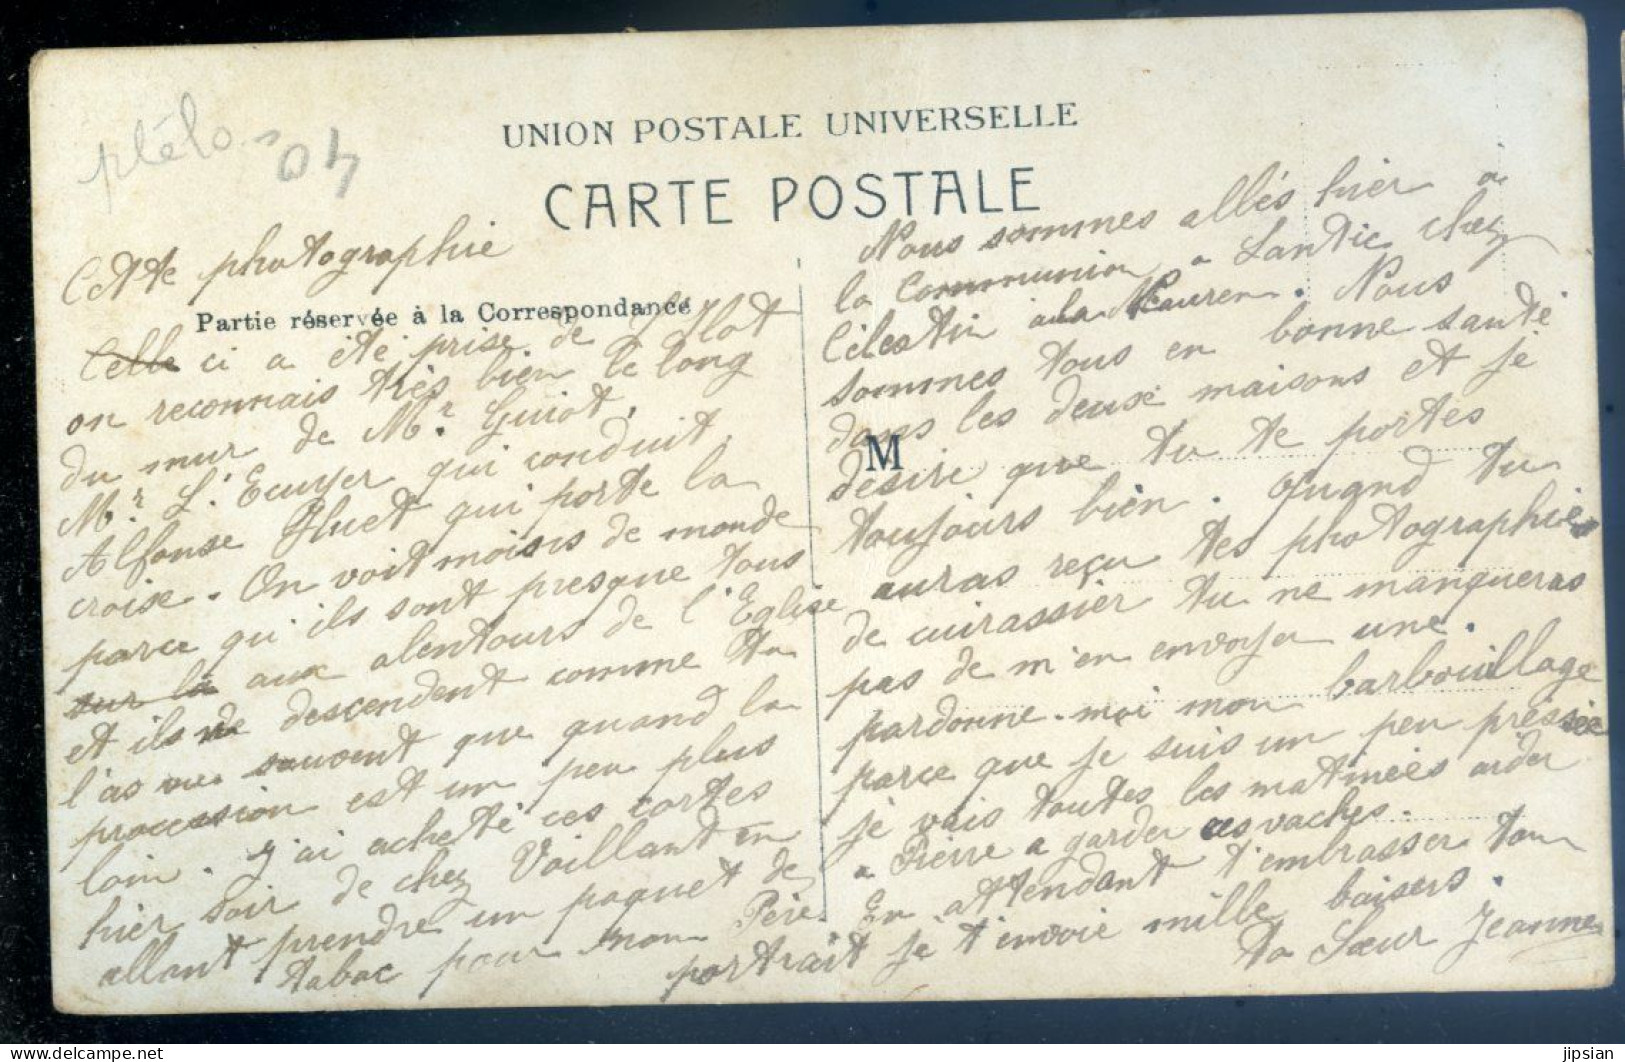 plélo
40
UNION POSTALE UNIVERSELLE
CARTE POSTALE
Partie réservée à la Correspondance
Cette photographie
Celle ci a été prise de
on reconnais très bien le long
du mur de Mr. Guiot,
Mr. L'Ecuyer qui conduit,
Alfonse Huet qui porte la
croise. On voit moisis de monde
parce qu'ils sont presque tous
sur la aux alentours de l'Eglise
et ils ne descendent comme tu
l'as vu souvent que quand la
procession est un peu plus
loin. J'ai acheté ces cartes
hier soir de chez Vaillant en
allant prendre un paquet de
tabac pour mon Père.
M
Nous sommes allés hier a
la Communion a Lantic chez
Célestin a la . Nous
sommes tous en bonne santé
dans les deuse maisons et je
désire que tu te portes
toujours bien. Quand tu
auras reçu tes photographies
de cuirassier tu ne manqueras
pas de m'en envoyer une.
pardonne-moi mon barbouillage
parce que je suis un peu préssée
je vais toutes les matineés aider
a Pierre a garder ces vaches.
En attendant t'embrasser ton
portrait je t'envoie mille baisers.
ta Sœur Jeanne
jipsian